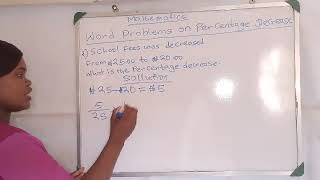 Mathematics
Word Problems on Percentage Decrease
School Fees was decreased
From $25.00 to $20.00
What is the Percentage decrease.
Sollution
$25-$20 = $5
5
25